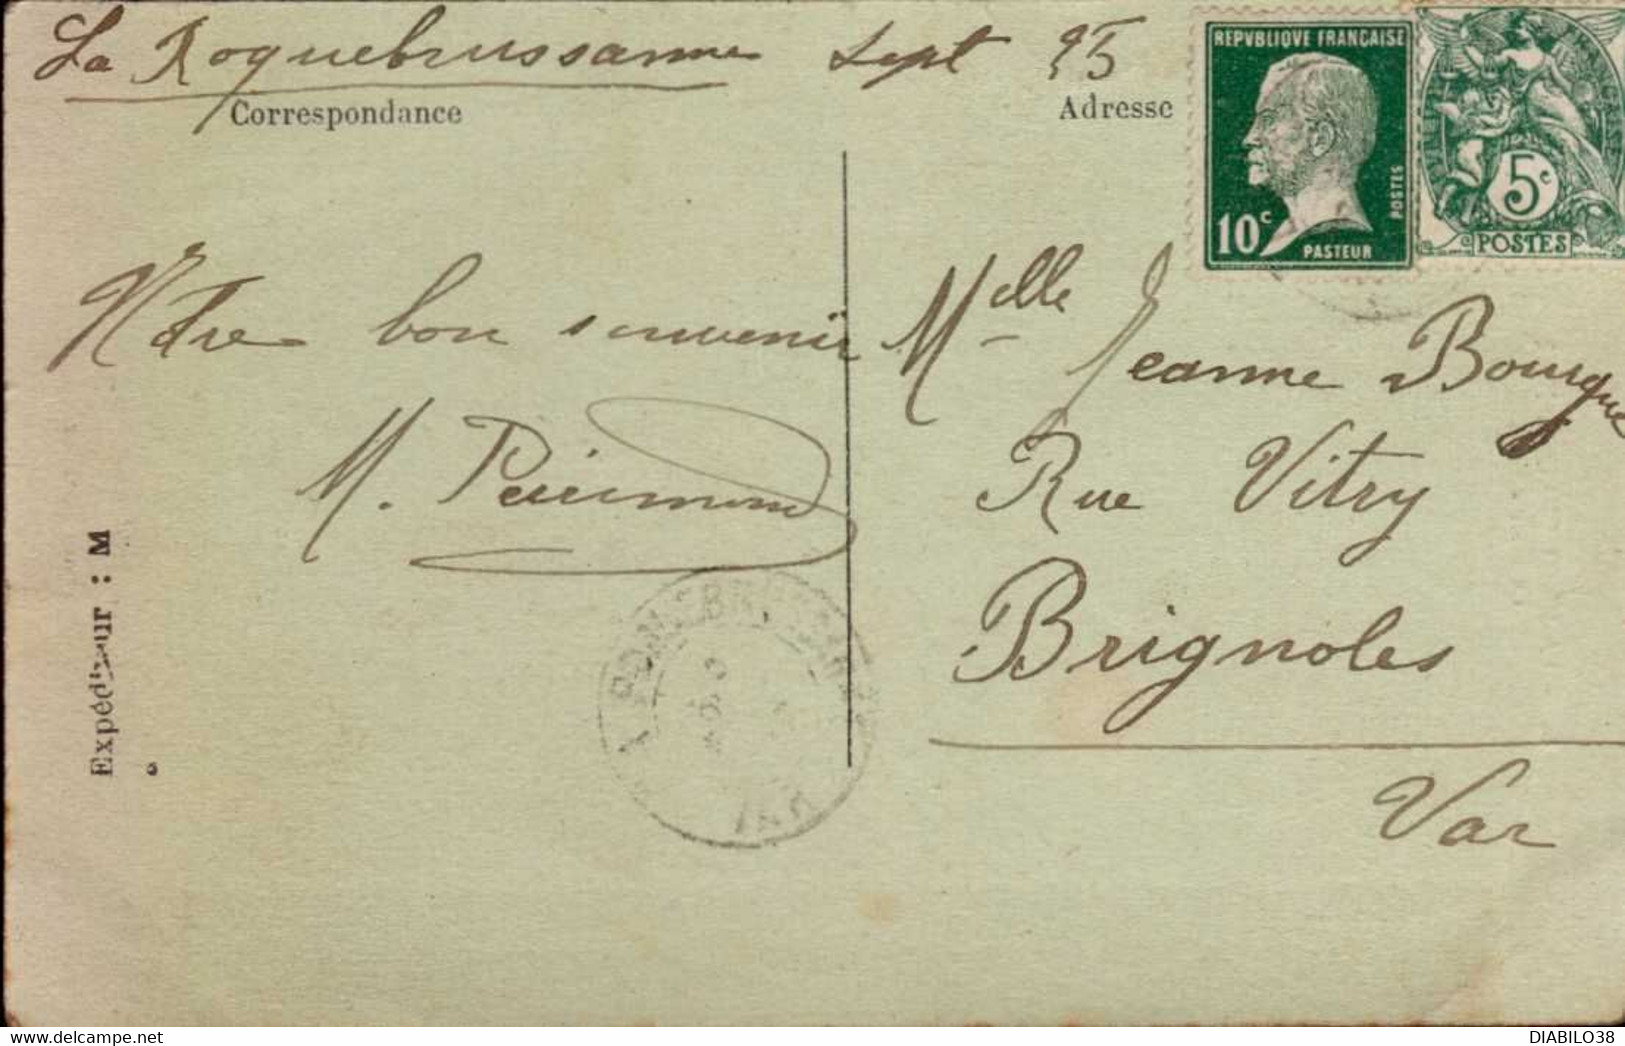 La Roquebrussanne Sept 25
Correspondance
Adresse
REPVBLIQVE FRANÇAISE
10c
PASTEUR
POSTES
5c
POSTES
Notre bon souvenir
M. Périmond
Melle Jeanne Bourgue
Rue Vitry
Brignoles
Var
Expéditeur : M
VAR
DIABILO38